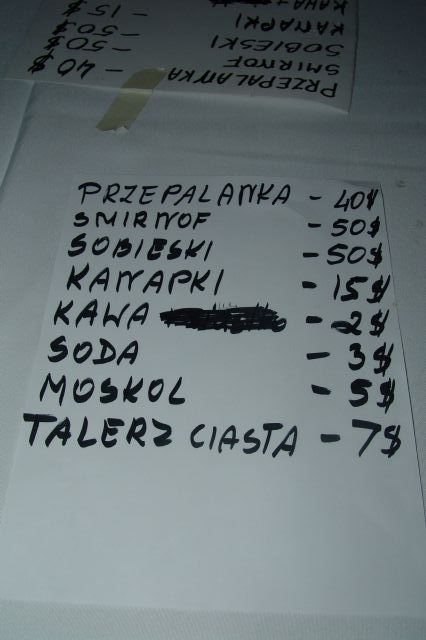 KAWA +
- 15 $
KANAPKI
- 50 $
SOBIESKI
- 50 $
SMIRNOF
PRZEPALANKA - 40 $
PRZEPALANKA - 40$
SMIRNOF - 50$
SOBIESKI - 50$
KANAPKI - 15$
KAWA - 2$
SODA - 3$
MOSKOL - 5$
TALERZ CIASTA - 7$